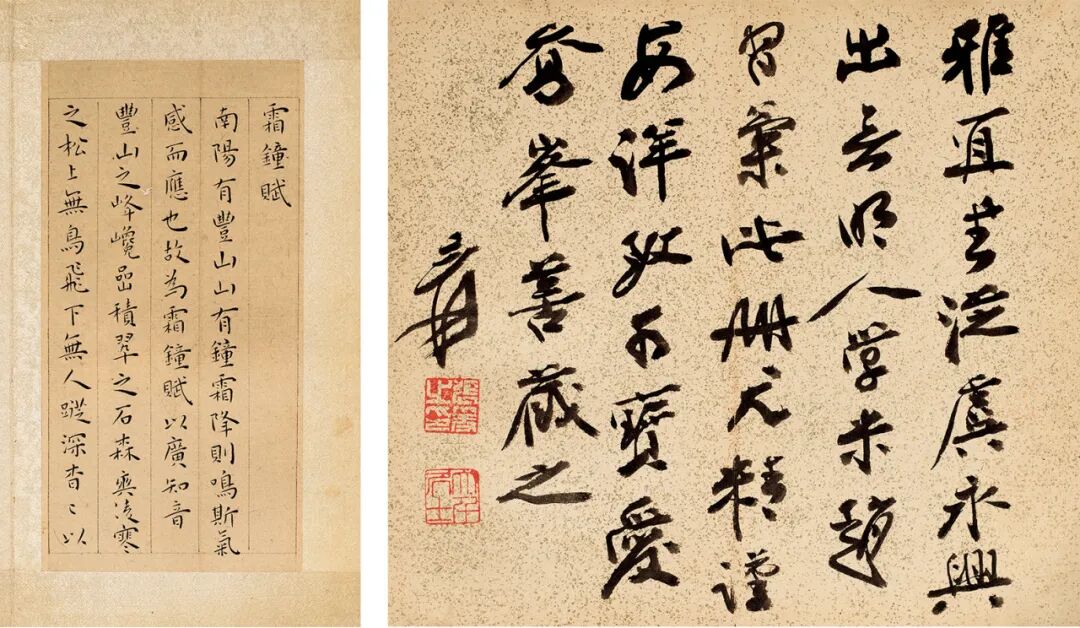 霜鐘賦
南陽有豐山山有鐘霜降則鳴斯氣
感而應也故為霜鐘賦以廣知音
豐山之峰巉嵒積翠之石森爽凌寒
之松上無鳥飛下無人蹤深杳〻以
雅宜書從虞永興
出無明人學米趙
習氣此冊尤精謹
安詳致可寶愛
峯善藏之
爰
張爰之印
大千居士